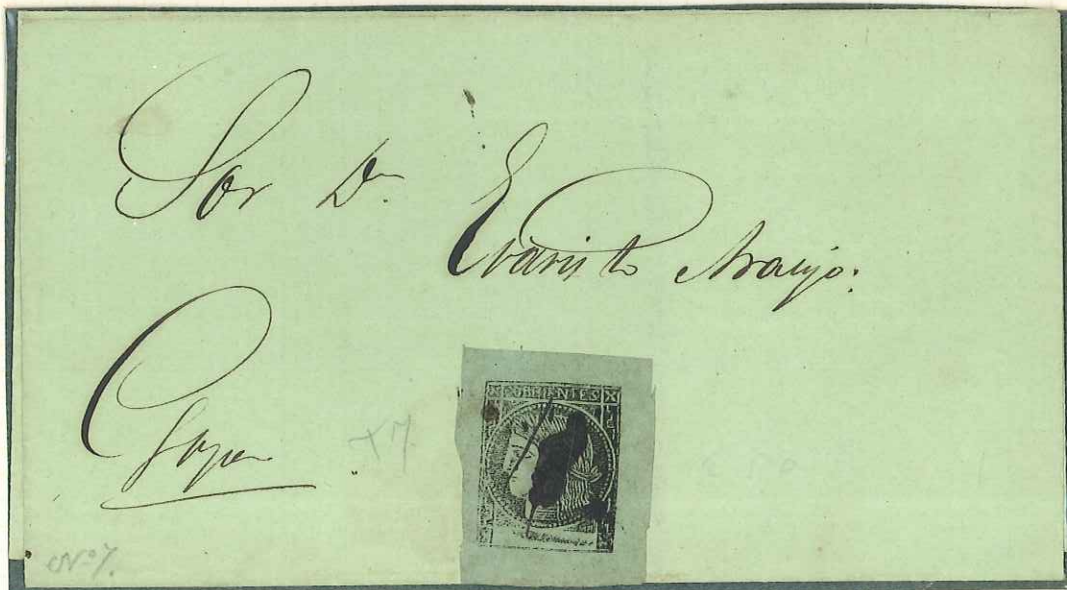 Sor Dn. Evaristo Araujo.
Goya
CORRIENTES
X7
No 7.